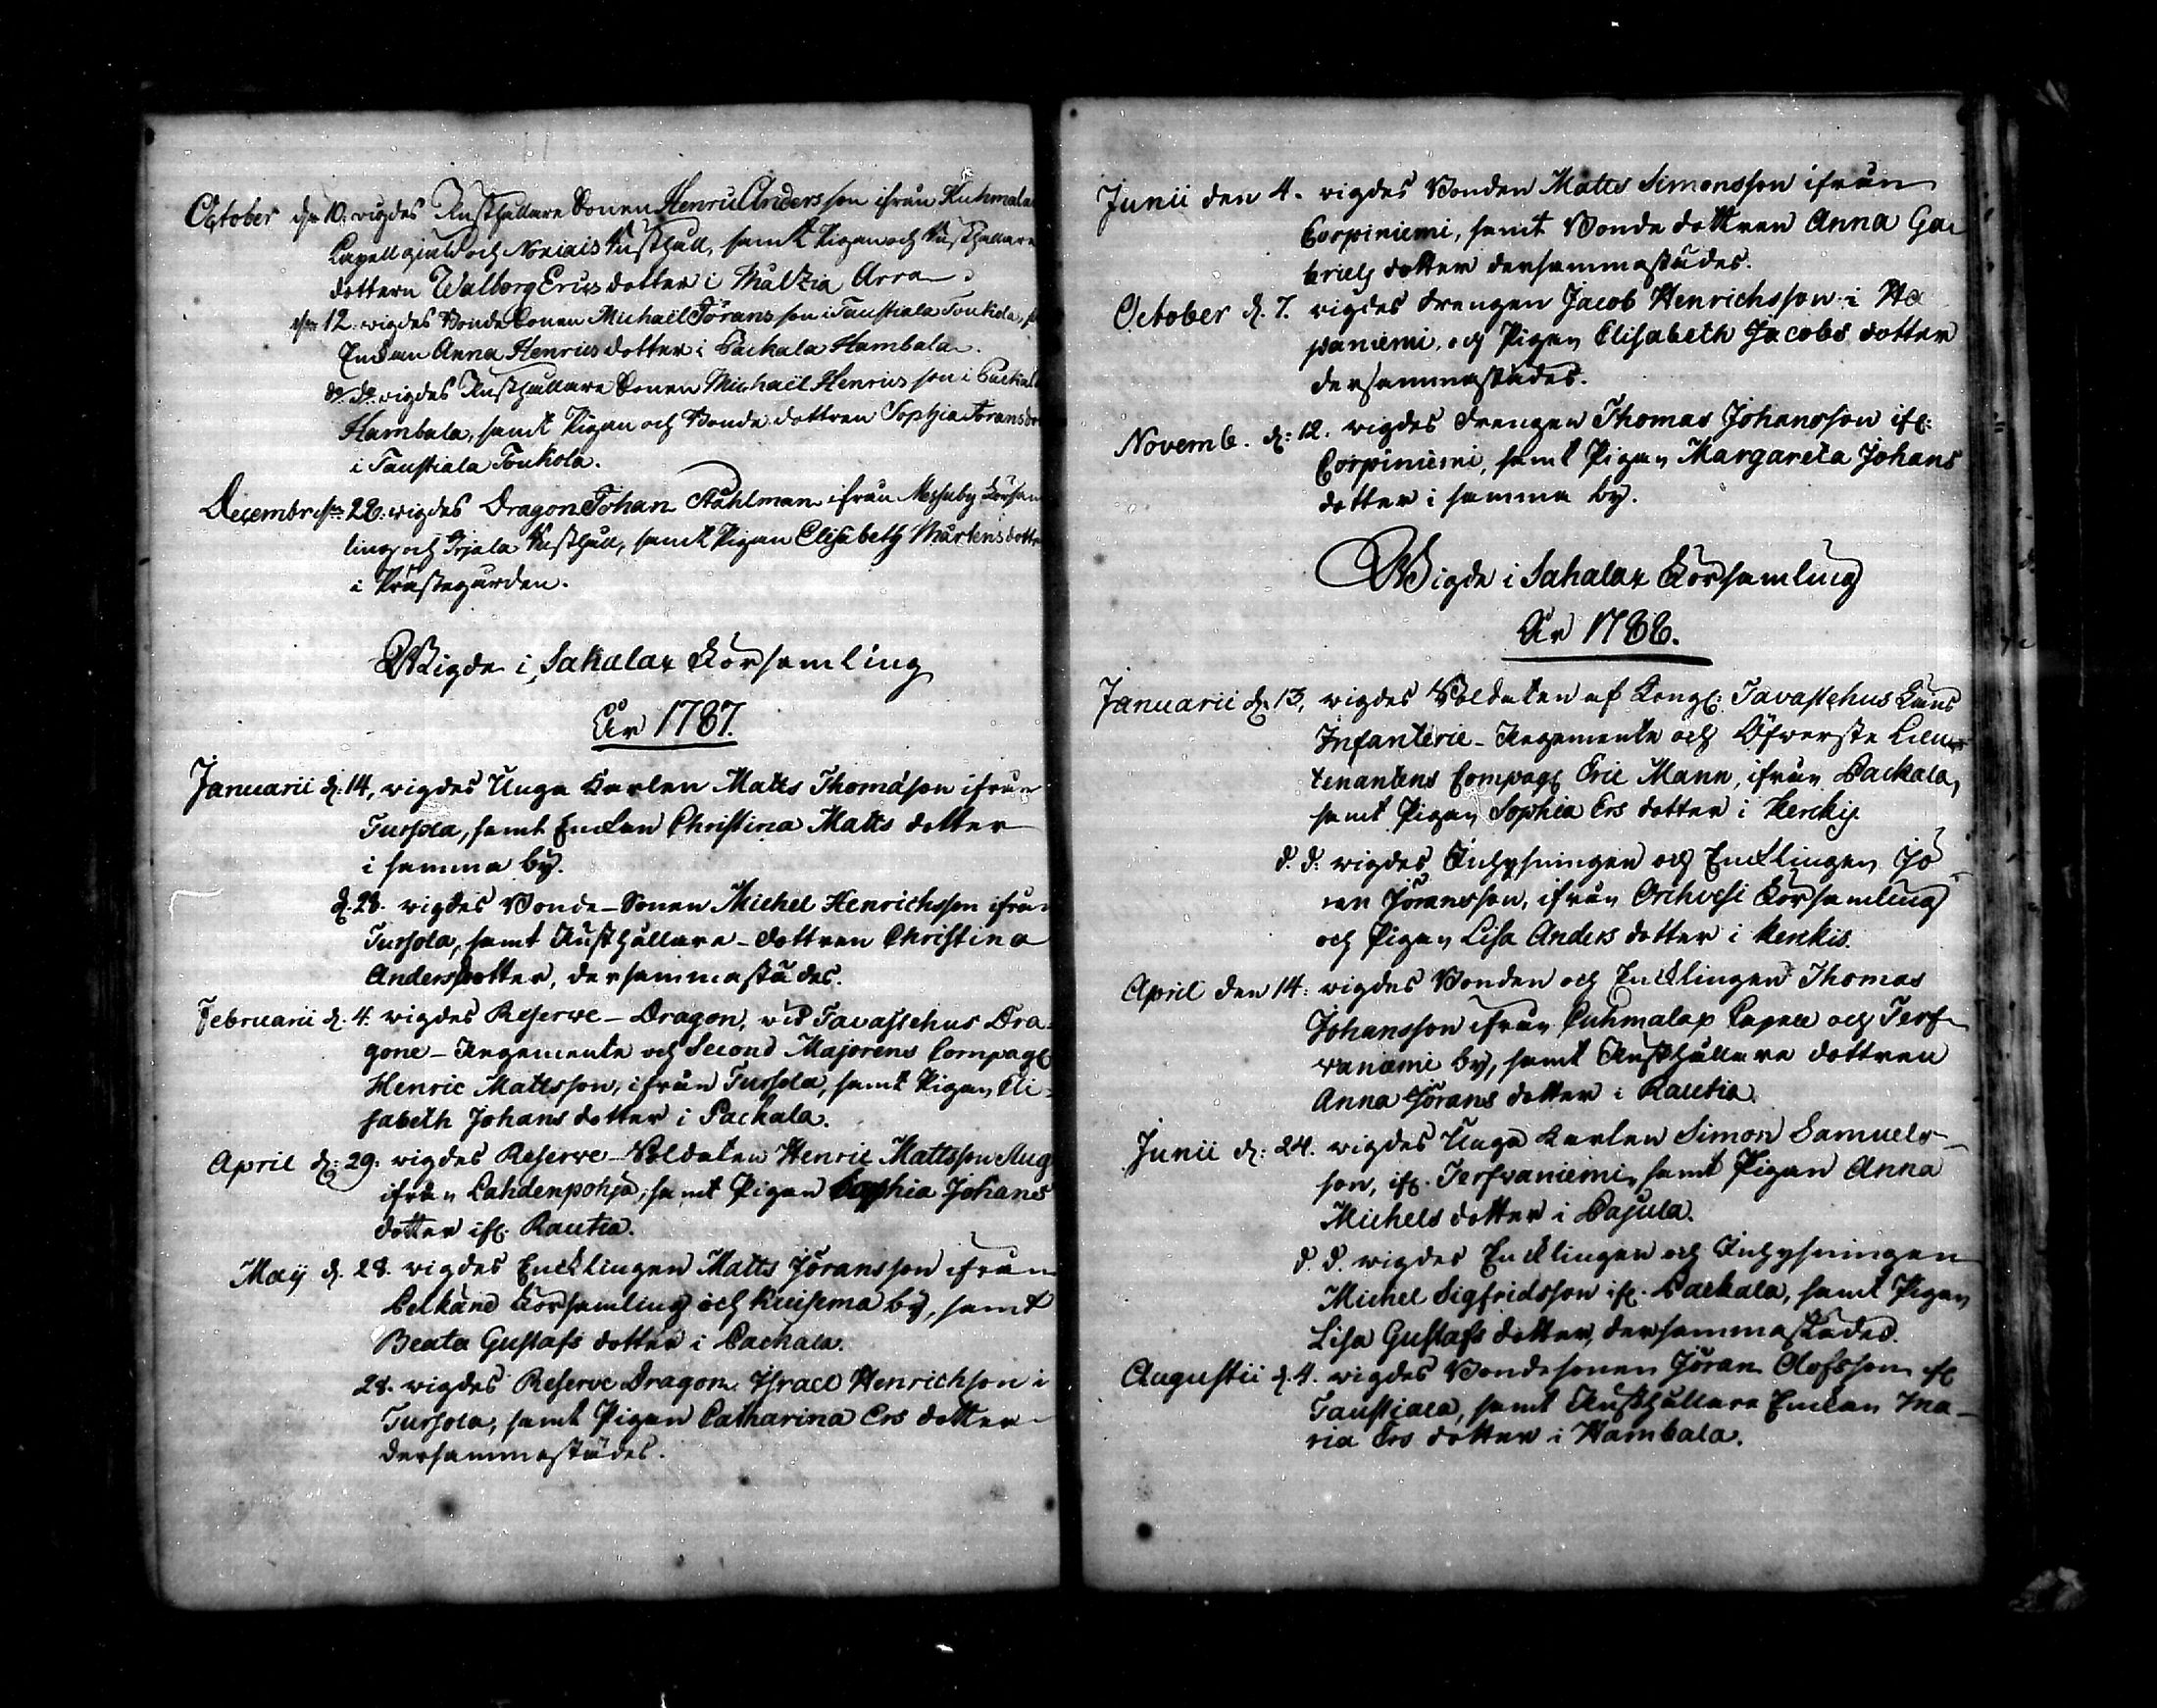 October den 10. wigdes Rusthållare Sonen Henric Andersson ifrån Kuhmala
Capell giäld och Noriais Rusthåll, samt Pigan och Rusthållare
dottern Walborg Erics dotter i Mältzia Arra.
den 12. wigdes Bonde Sonen Michael Jöransson i Taustiala Toukola,
Enckan Anna Henrics dotter i Packala Hambala.
dn. dn. wigdes Rusthållare Sonen Michaël Henricsson i Packal
Hambala, samt Pigan och Bonde dottren Sophia Jörans
i Taustiala Toukola.
Decembr. den 28. wigdes Dragon Johan Ståhlman ifrån Messuby Försam
ling och Irjala Rusthåll, samt Pigan Elisabeth Mårtens dott
i Prästegården.
Wigde i Sahalax Församling
År 1787.
Januarii d. 14, wigdes Unga Karlen Matts Thomasson ifrån
Turpola, samt Enckan Christina Matts dotter
i samma by.
d. 28. wigdes Bonde-Sonen Michel Henrichsson ifrån
Turpola, samt Rusthållare-dottren Christina
Andersdotter, dersammastädes.
Februarii d. 4. wigdes Reserve-Dragon, vid Tavastehus Dra-
gone-Regemente och Second Majorens Compag:
Henric Mattsson, ifrån Turpola, samt Pigan Eli-
sabeth Johans dotter i Packala.
April d: 29. wigdes Reserve-Soldaten Henric Mattsson Aug
ifrån Lahdenpohja, samt Pigan Sophia Johans
dotter ifr. Rautia.
Maij d. 28. wigdes Encklingen Matts Jöransson ifrån
Pelkäne Församling och Kuisema by, samt
Beata Gustafs dotter i Packala.
28. wigdes Reserve Dragon Israel Henrichson i
Turpola, samt Pigan Catharina Ers dotter
dersammastädes.
Junii den 4. wigdes Bonden Matts Simonsson ifrån
Corpiniemi, samt Bonde dottren Anna Ga-
briels dotter dersammastädes.
October d. 7. wigdes drengen Jacob Henrichsson i Ha
paniemi, och Pigan Elisabeth Jacobs dotter
dersammastädes.
Novemb. d: 12. wigdes drengen Thomas Johansson ifr:
Corpiniemi, samt Pigan Margareta Johans
dotter i samma by.
Wigde i Sahalax Församling
År 1788.
Januarii d. 13, wigdes Soldaten af Kongl: Tavastehus Läns
Infanterie-Regemente och Öfwerste Lieu-
tenantens Compag: Eric Mann, ifrån Packala,
samt Pigan Sophia Ers dotter i Kerckis
d. d. wigdes Inhysningen och Encklingen Jö-
ran Jöransson, ifrån Orihvesi Församling
och Pigan Lisa Anders dotter i Kerckis.
April den 14. wigdes Bonden och Encklingen Thomas
Johansson ifrån Cuhmalax Capell och Terf-
vaniemi by, samt Rusthållare dottren
Anna Jörans dotter i Rautia.
Junii d: 24. wigdes Unga Karlen Simon Samuels-
son, ifr. Terfvaniemi, samt Pigan Anna
Michels dotter i Pajula.
d. d. wigdes Encklingen och Inhysningen
Michel Sigfridsson ifr. Packala, samt Pigan
Lisa Gustafs dotter, dersammastädes.
Augustii d. 4. wigdes Bondesonen Jöran Olofsson ifr
Taustiala, samt Rusthållare Enckan Ma-
ria Ers dotter i Hambala.